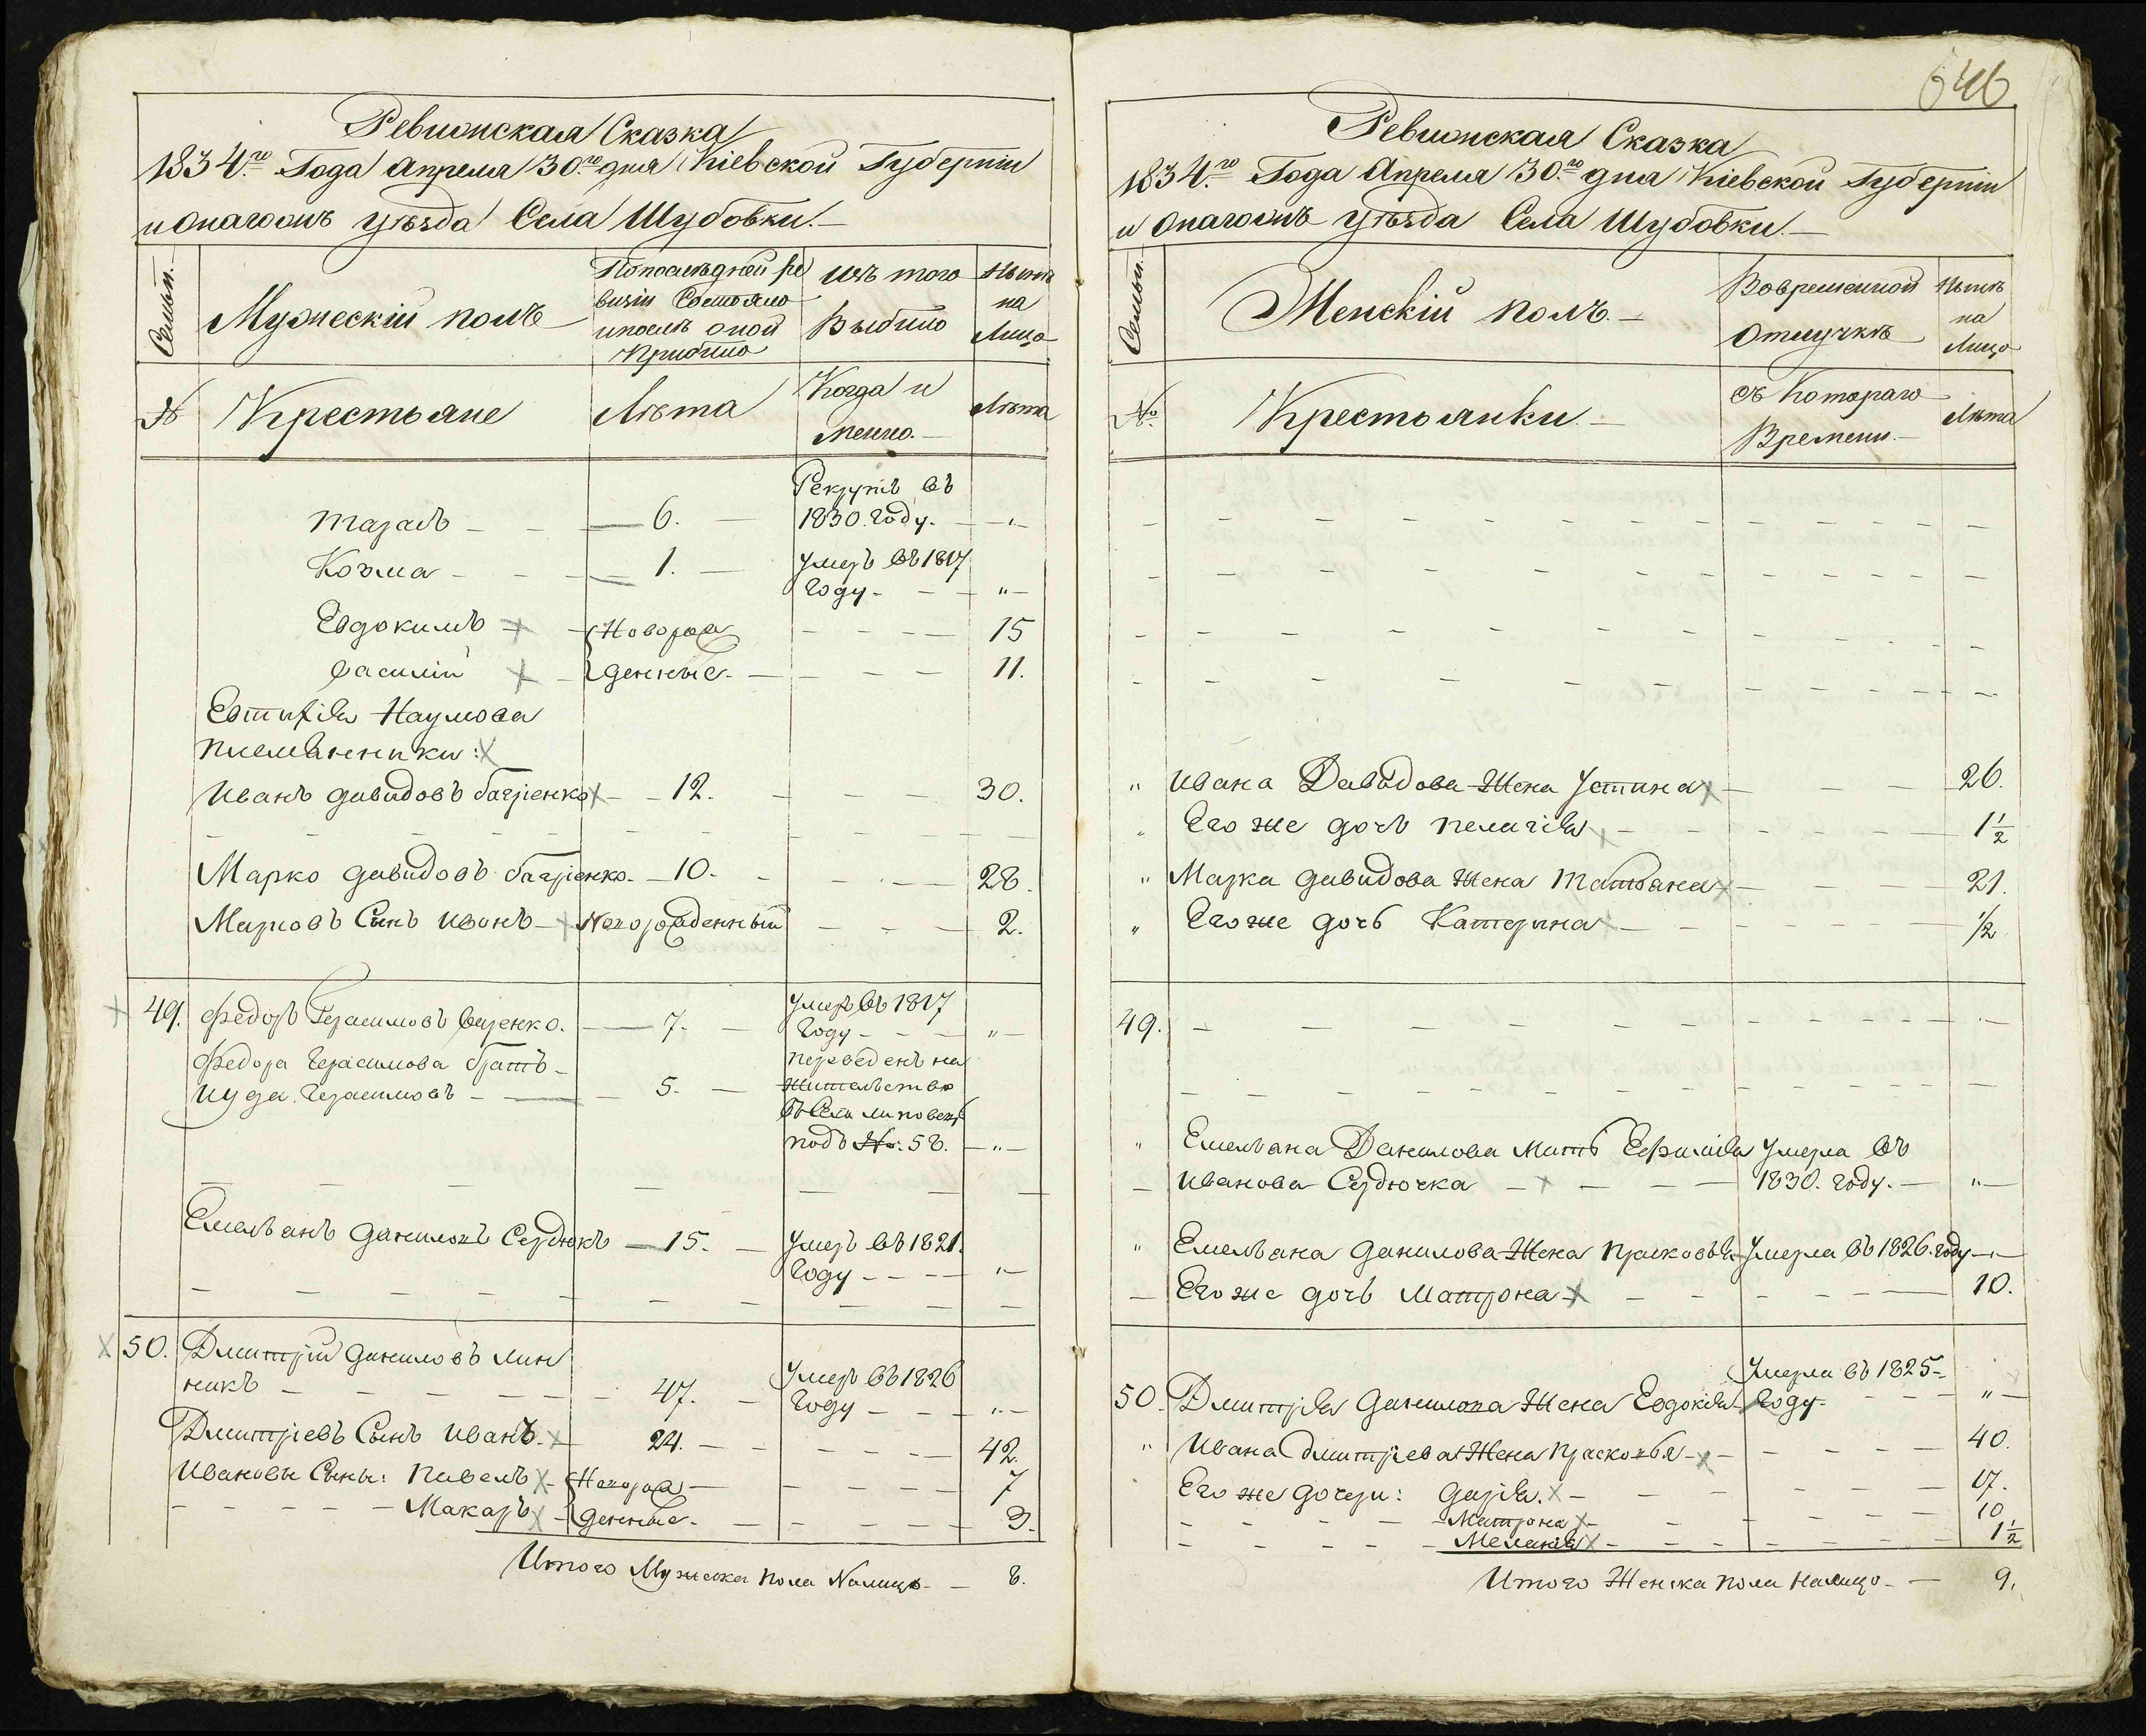 Ревизская Сказка
1834.го Года Апреля 30.го дня Кіевской Губерніи
уѣзда Села Шубовки.
Семьи.
Мужескій полъ
Попослѣдней ре
визіи Состояло
ипослѣ оной
Прибыло
Изъ того
Выбыло
Нынѣ
на
Лицо
№
Крестьяне
Лѣта
Когда и
менно.
Лѣта
Тарасъ 6. Рекрутъ въ
1830. году.
Козма 1. Умеръ въ 1817
году
Евдокимъ Новорож 15
Василій денные 11.
Евтифія Наумова
племѣнники:
Иванъ Давидовъ 12. 30.
Марко Давидовъ 10. 28.
Марковъ Сынъ Иванъ Новорожденный 2.
49. Федоръ Герасимовъ 7. Умеръ въ 1817
году
Федора Герасимова братъ
Герасимовъ 5. переведенъ на
жительство
подъ №: 58.
Емельянъ Даниловъ Сердюкъ 15. Умеръ въ 1821.
году
50. Дмитрій Даниловъ Лин
никъ 47. Умеръ въ 1826
году
Дмитріевъ Сынъ Иванъ 24. 42.
Ивановы Сыны: Павелъ Новорож 7
Макаръ денные 3.
Итого Мужеска пола Налицо 8.
646
Ревизская Сказка
1834.го Года Апреля 30.го дня Кіевской Губерніи
уѣзда Села Шубовки.
Семьи.
Женскій полъ.
Вовременной
Отлучкѣ
Нынѣ
на
Лицо
№
Крестьянки.
съ Котораго
Времени.
Лѣта
Ивана Давидова Жена Устина 26.
Его же дочь Пелагія 1 1/2
Марка Давидова Жена Татьяна 21.
Его же дочь Катерина 1/2
49.
Емельяна Данилова Мать Ефимія Умерла въ
Иванова Сердючка 1830. году.
Емельяна Данилова Жена Прасковья Умерла въ 1826. году
Его же дочь Матрона 10.
Умерла въ 1825
50. Дмитрія Данилова Жена Евдокія году
Ивана Дмитріева Жена Прасковья 40.
Его же дочери: Дарія. 17.
Матрона 10
Меланія 1 1/2
Итого Женска пола Налицо 9.